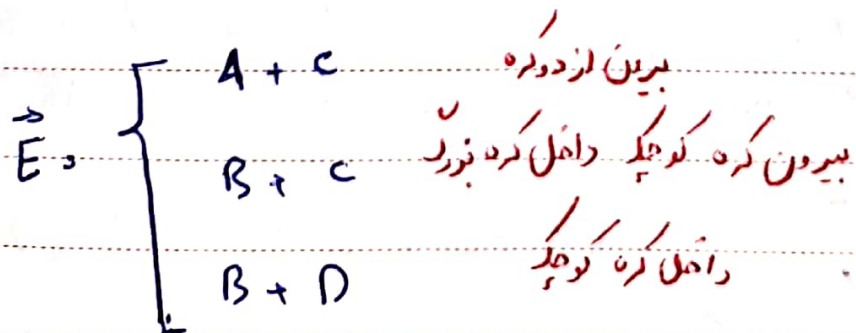 A + C بیرون از دوکره
E⃗ = B + C بیرون کره کوچک داخل کره بزرگ
B + D داخل کره کوچک